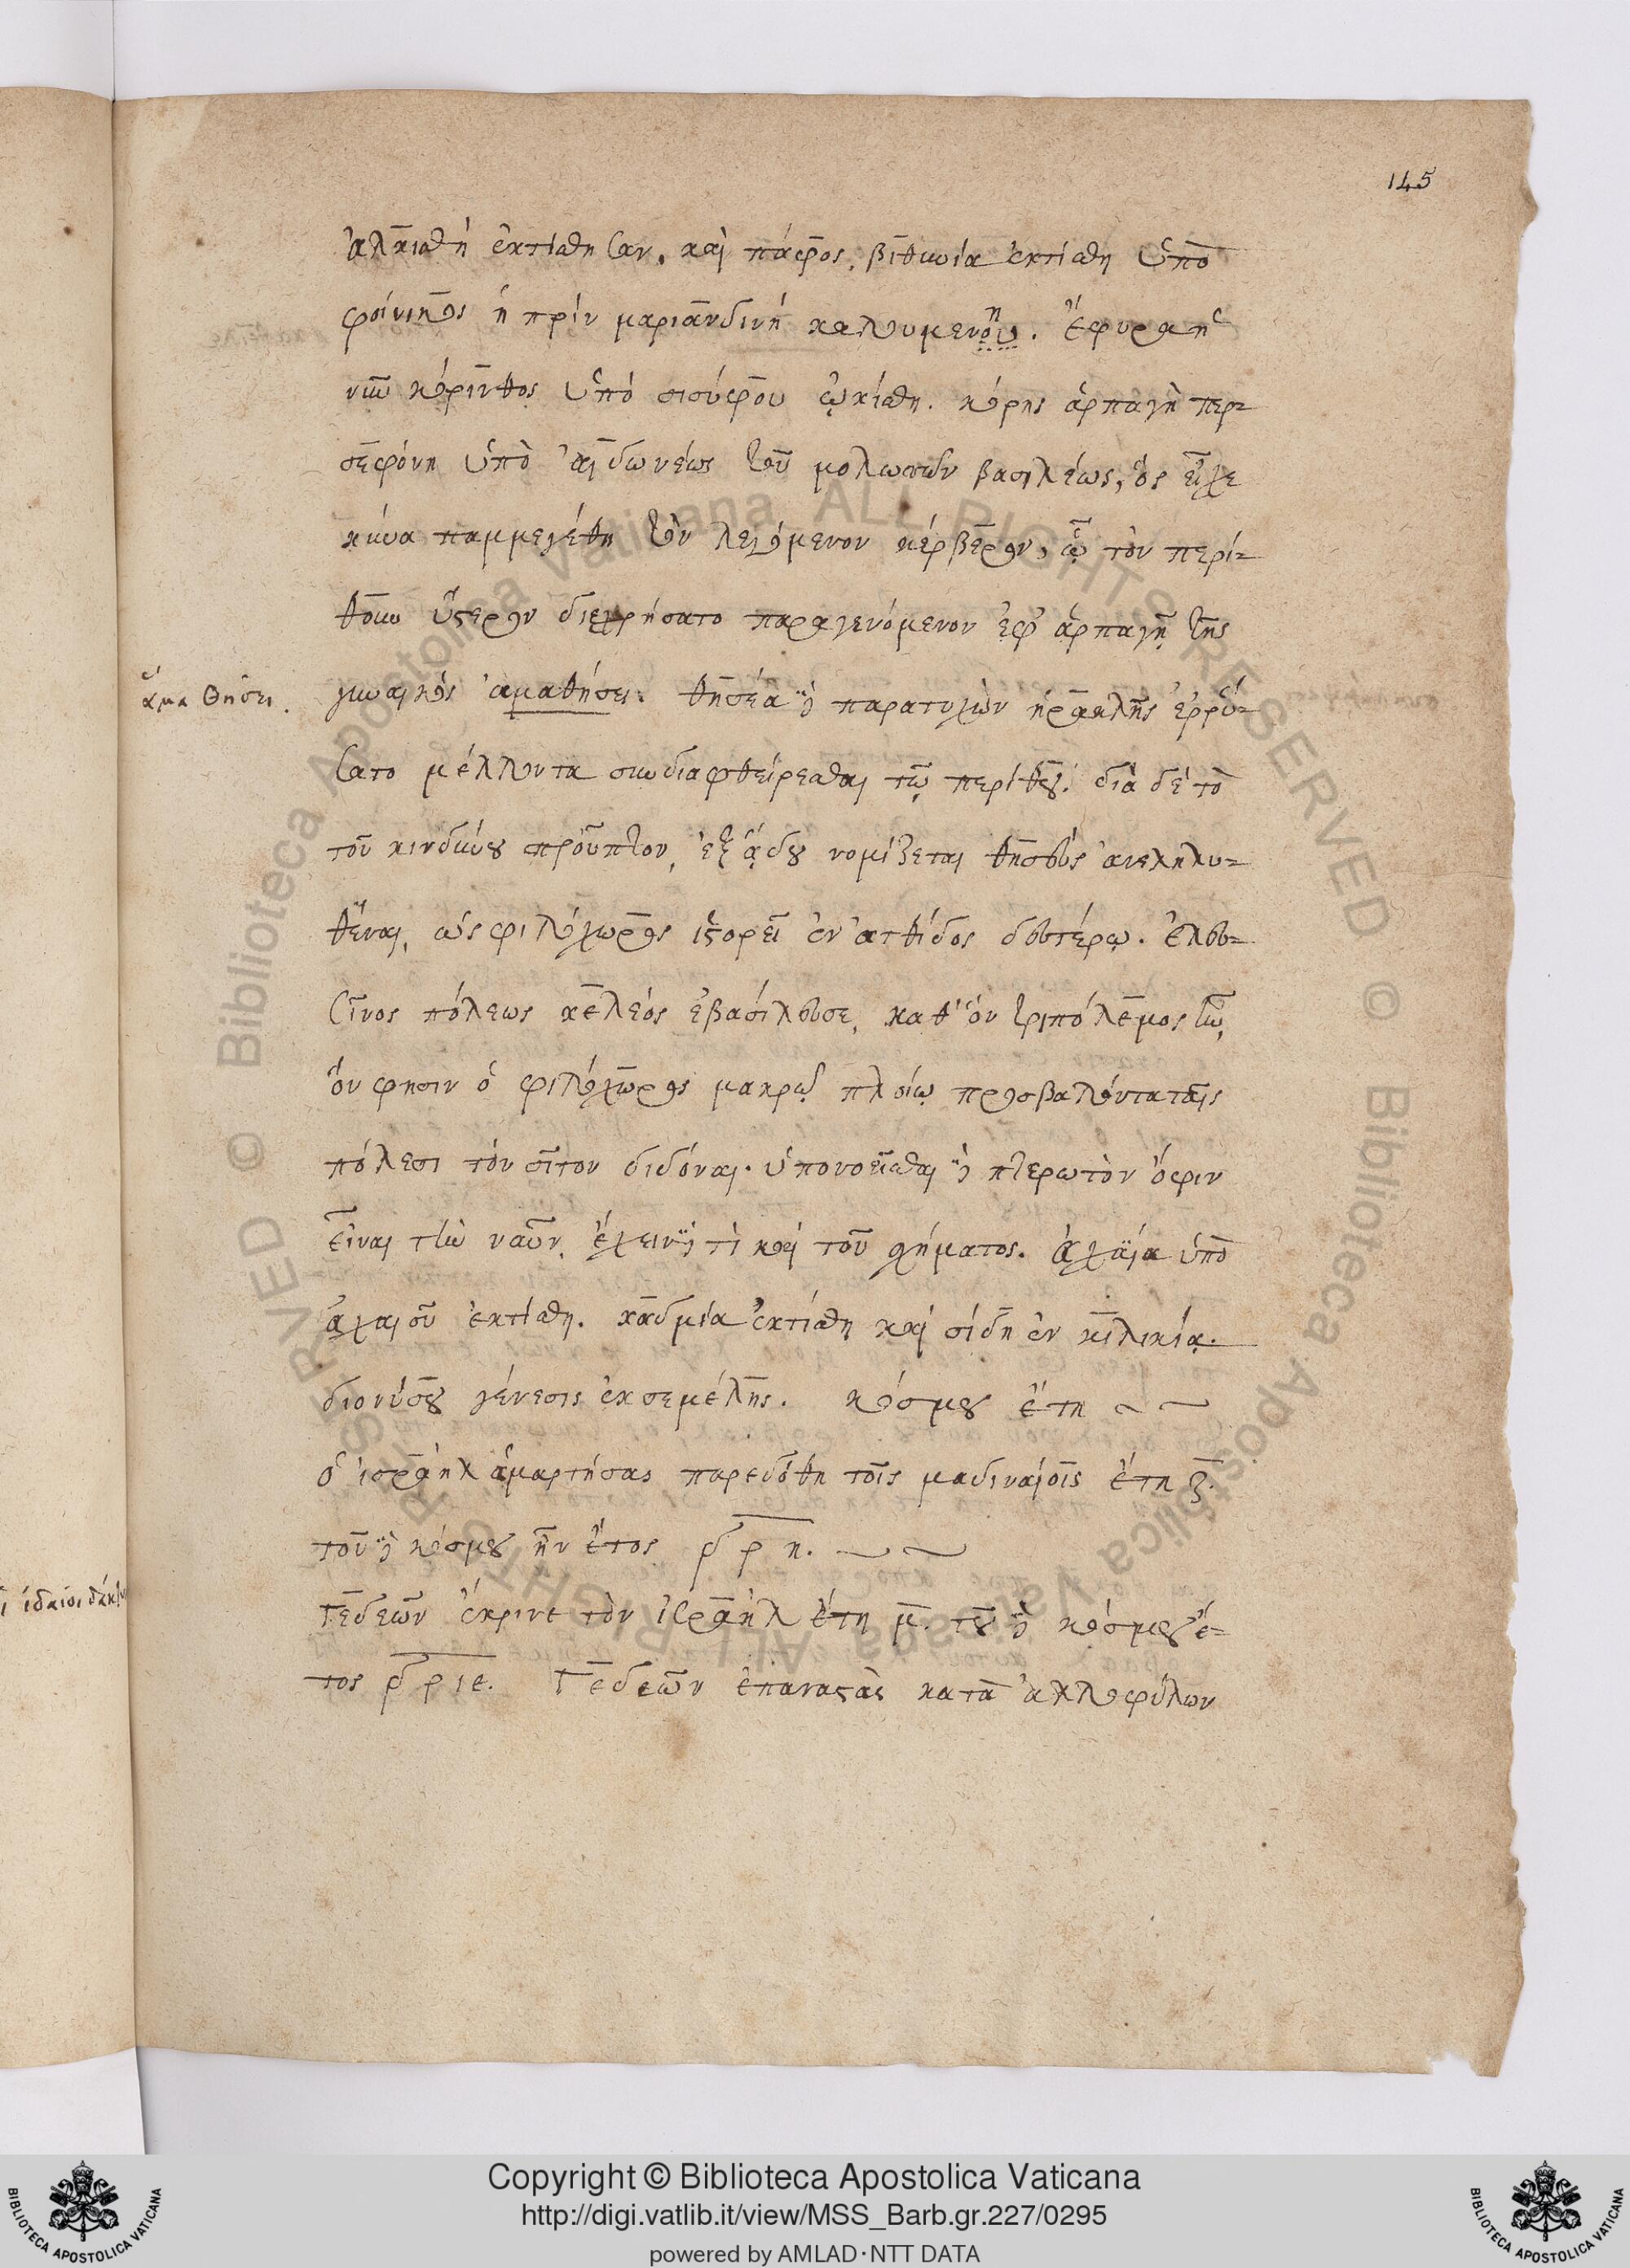 145
ἀλκιαθὴ ἐκτίσθησαν. καὶ πάφος. βιθυνία ἐκτίσθη ὑπὸ
φοίνικος ἡ πρὶν μαριανδινὴ καλουμενοὺη. ἔφυρα ἡ
νῦν κόρινθος ὑπὸ σισύφου ᾠκίσθη. κόρης ἁρπαγὴ περ-
σεφόνη ὑπὸ ἀϊδωνέως τοῦ μολωσσῶν βασιλέως, ὃς εἶχε
κύνα παμμεγέθη τὸν λεγόμενον κέρβερον, ᾧ τὸν περί-
θουν ὕστερον διεχρήσατο παραγενόμενον ἐφ ἁρπαγῇ τῆς
ἅμα Θήσει.
γυναικὸς ἀμαθήσει. θησέα δὲ παρατυχὼν ἡρακλῆς ἐρρύ-
σατο μέλλοντα συνδιαφθείρεσθαι τῷ περίθου. διὰ δὲ τὸ
τοῦ κινδύνου προῦπτον, ἐξ ᾅδου νομίζεται θησεὺς ἀνεληλυ-
θέναι, ὡς φιλόχωρος ἱστορεῖ ἐν ἀτθίδος δευτέρῳ. ἐλευ-
σῖνος πόλεως κελεὸς ἐβασίλευσε, καθ' ὃν τριπόλεμος ἦν,
ὅν φησιν ὁ φιλόχωρος μακρῷ πλοίῳ προσβαλόντα ταῖς
πόλεσι τὸν σῖτον διδόναι. ὑπονοεῖσθαι δὲ πτερωτὸν ὄφιν
εἶναι τὴν ναῦν, ἔχειν δέ τι καὶ τοῦ σχήματος. ἀχαΐα ὑπὸ
ἀχαιοῦ ἐκτίσθη. καδμία ἐκτίσθη καὶ σίδη ἐν κιλικίᾳ.
διονύσου γένεσις ἐκ σεμέλης. κόσμου ἔτη
ὁ ἰσραὴλ ἁμαρτήσας παρεδόθη τοῖς μαδιναίοις ἔτη ζ.
τοῦ δὲ κόσμου ἦν ἔτος
ι ἰδαῖοι δάκτυ
Γεδεὼν ἔκρινε τὸν ἰσραὴλ ἔτη μ. τοῦ δὲ κόσμου ἔ-
τος Γεδεὼν ἐπαναστὰς κατὰ ἀλλοφύλων
Copyright © Biblioteca Apostolica Vaticana
http://digi.vatlib.it/view/MSS_Barb.gr.227/0295
powered by AMLAD·NTT DATA
BIBLIOTECA APOSTOLICA VATICANA
BIBLIOTECA APOSTOLICA VATICANA